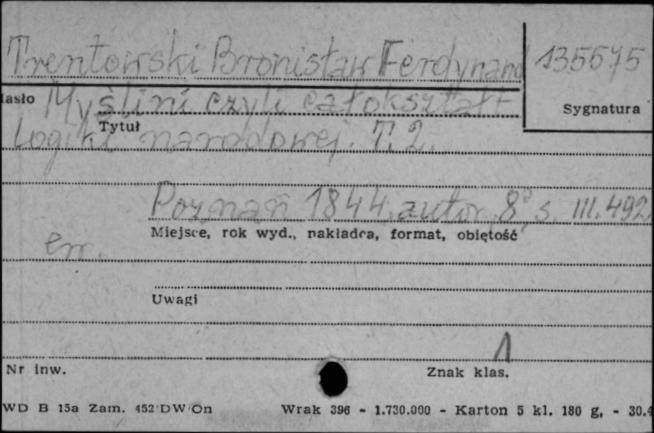 Trentowski Bronisław Ferdynand 135575
Hasło
Myślini czyli całokształt
Sygnatura
Tytuł
Logiki narodowej. T. 2.
Poznań 1844, autor, 8° s. III. 492
Miejsce, rok wyd., nakładca, format, objętość
err.
Uwagi
1
Nr inw. Znak klas.
WD B 15a Zam. 452 DW/On Wrak 396 - 1.730.000 - Karton 5 kl. 180 g, - 30.4